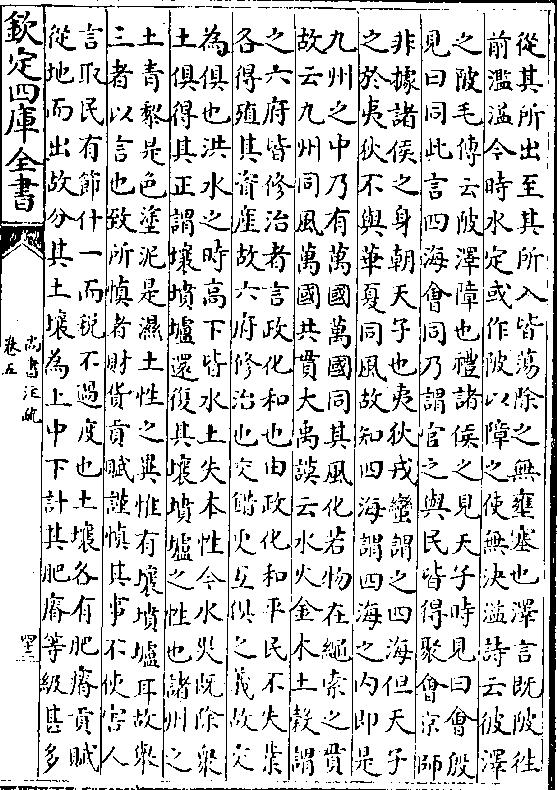 從其所出至其所入皆蕩除之無壅塞也澤言既陂往
前濫溢今時水定或作陂以障之使無決溢詩云彼澤
之陂毛傳云陂澤障也禮諸侯之見天子時見曰會殷
見曰同此言四海會同乃謂官之與民皆得聚會京師
非據諸侯之身朝天子也夷狄戎蠻謂之四海但天子
之於夷狄不與華夏同風故知四海謂四海之內即是
九州之中乃有萬國萬國同其風化若物在繩索之貫
故云九州同風萬國共貫大禹謨云水火金木土穀謂
之六府皆修治者言政化和也由政化和平民不失業
各得殖其資產故六府修治也交錯更互俱之義故交
為俱也洪水之時高下皆水土失本性今水災既除衆
土俱得其正謂壤墳壚還復其壤墳壚之性也諸州之
土青黎是色塗泥是濕土性之異惟有壤墳壚耳故舉
三者以言也致所慎者財貨貢賦謹慎其事不使害人
言取民有節什一而稅不過度也土壤各有肥瘠貢賦
從地而出故分其土壤為上中下計其肥瘠等級甚多
欽定四庫全書
尚書注疏
卷五